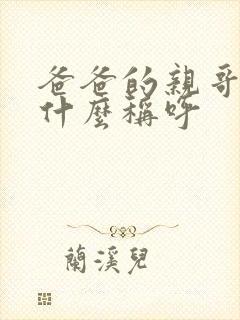 爸爸的親哥
什麼稱呼
蘭溪兒